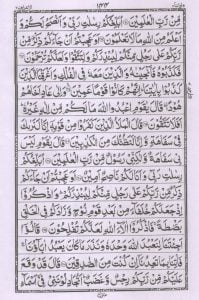 ۱۴۴
مِّنْ رَّبِّ الْعٰلَمِیْنَ ۝ اُبَلِّغُكُمْ رِسٰلٰتِ رَبِّیْ وَاَنْصَحُ لَكُمْ وَ
اَعْلَمُ مِنَ اللّٰهِ مَا لَا تَعْلَمُوْنَ ۝ اَوَعَجِبْتُمْ اَنْ جَآءَكُمْ ذِكْرٌ مِّنْ
رَّبِّكُمْ عَلٰی رَجُلٍ مِّنْكُمْ لِیُنْذِرَكُمْ وَلِتَتَّقُوْا وَلَعَلَّكُمْ تُرْحَمُوْنَ ۝
فَكَذَّبُوْهُ فَاَنْجَیْنٰهُ وَالَّذِیْنَ مَعَهٗ فِی الْفُلْكِ وَاَغْرَقْنَا الَّذِیْنَ
كَذَّبُوْا بِاٰیٰتِنَا ؕ اِنَّهُمْ كَانُوْا قَوْمًا عَمِیْنَ ۝ وَاِلٰی عَادٍ اَخَاهُمْ
هُوْدًا ؕ قَالَ یٰقَوْمِ اعْبُدُوا اللّٰهَ مَا لَكُمْ مِّنْ اِلٰهٍ غَیْرُهٗ ؕ
اَفَلَا تَتَّقُوْنَ ۝ قَالَ الْمَلَاُ الَّذِیْنَ كَفَرُوْا مِنْ قَوْمِهٖۤ اِنَّا لَنَرٰىكَ
فِیْ سَفَاهَةٍ وَّاِنَّا لَنَظُنُّكَ مِنَ الْكٰذِبِیْنَ ۝ قَالَ یٰقَوْمِ لَیْسَ
بِیْ سَفَاهَةٌ وَّلٰكِنِّیْ رَسُوْلٌ مِّنْ رَّبِّ الْعٰلَمِیْنَ ۝ اُبَلِّغُكُمْ
رِسٰلٰتِ رَبِّیْ وَاَنَا لَكُمْ نَاصِحٌ اَمِیْنٌ ۝ اَوَعَجِبْتُمْ اَنْ جَآءَكُمْ
ذِكْرٌ مِّنْ رَّبِّكُمْ عَلٰی رَجُلٍ مِّنْكُمْ لِیُنْذِرَكُمْ ؕ وَاذْكُرُوْۤا
اِذْ جَعَلَكُمْ خُلَفَآءَ مِنْۢ بَعْدِ قَوْمِ نُوْحٍ وَّزَادَكُمْ فِی الْخَلْقِ
بَصْۜطَةً ۚ فَاذْكُرُوْۤا اٰلَآءَ اللّٰهِ لَعَلَّكُمْ تُفْلِحُوْنَ ۝ قَالُوْۤا
اَجِئْتَنَا لِنَعْبُدَ اللّٰهَ وَحْدَهٗ وَنَذَرَ مَا كَانَ یَعْبُدُ اٰبَآؤُنَا ۚ
فَاْتِنَا بِمَا تَعِدُنَاۤ اِنْ كُنْتَ مِنَ الصّٰدِقِیْنَ ۝ قَالَ قَدْ وَقَعَ
عَلَیْكُمْ مِّنْ رَّبِّكُمْ رِجْسٌ وَّغَضَبٌ ؕ اَتُجَادِلُوْنَنِیْ فِیْۤ اَسْمَآءٍ